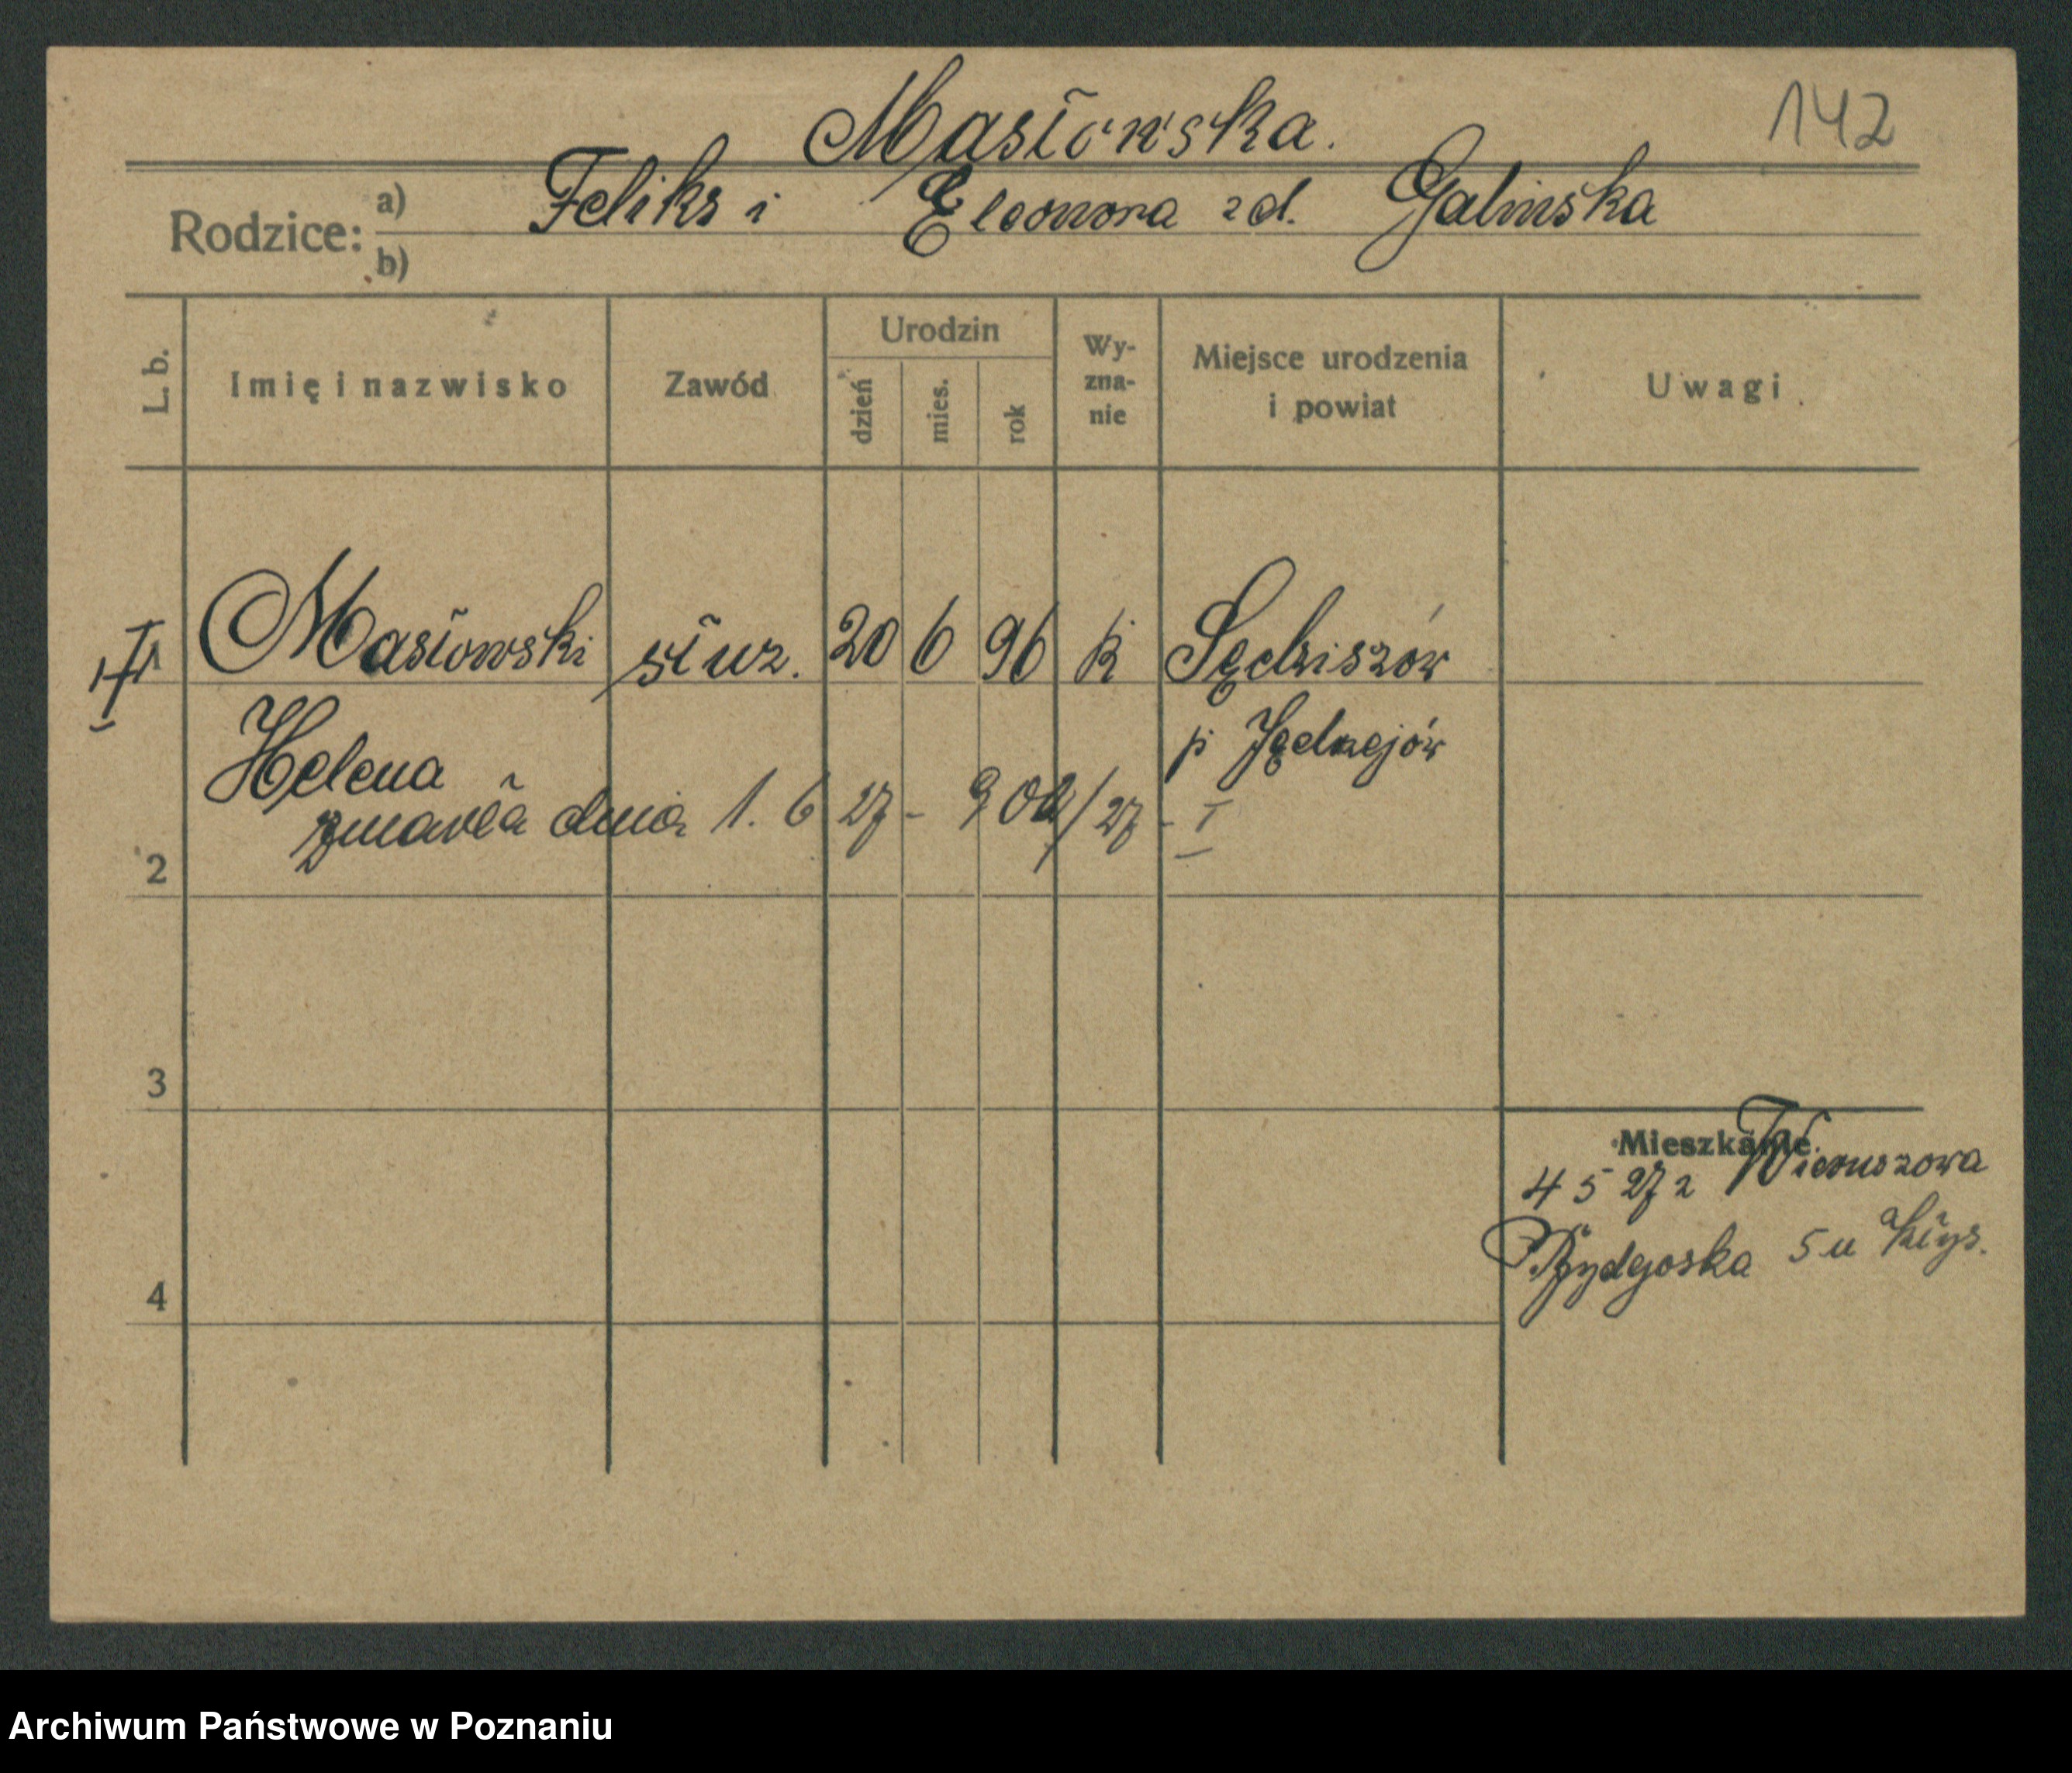 Masłowska.
142
Rodzice:
a) Feliks i Eleonora zd. Galinska
b)
L. b.
Imię i nazwisko
Zawód
Urodzin
dzień
mies.
rok
Wy-
zna-
nie
Miejsce urodzenia
i powiat
Uwagi
1 Masłowski słuz. 20 6 96 k Sędziszów
Helena p Jędrzejów
zmarła dnia 1. 6 27 - 902/27 - I
2
3
4
Mieszkanie
4 5 27 z Wieruszowa
Bydgoska 5 u
Archiwum Państwowe w Poznaniu